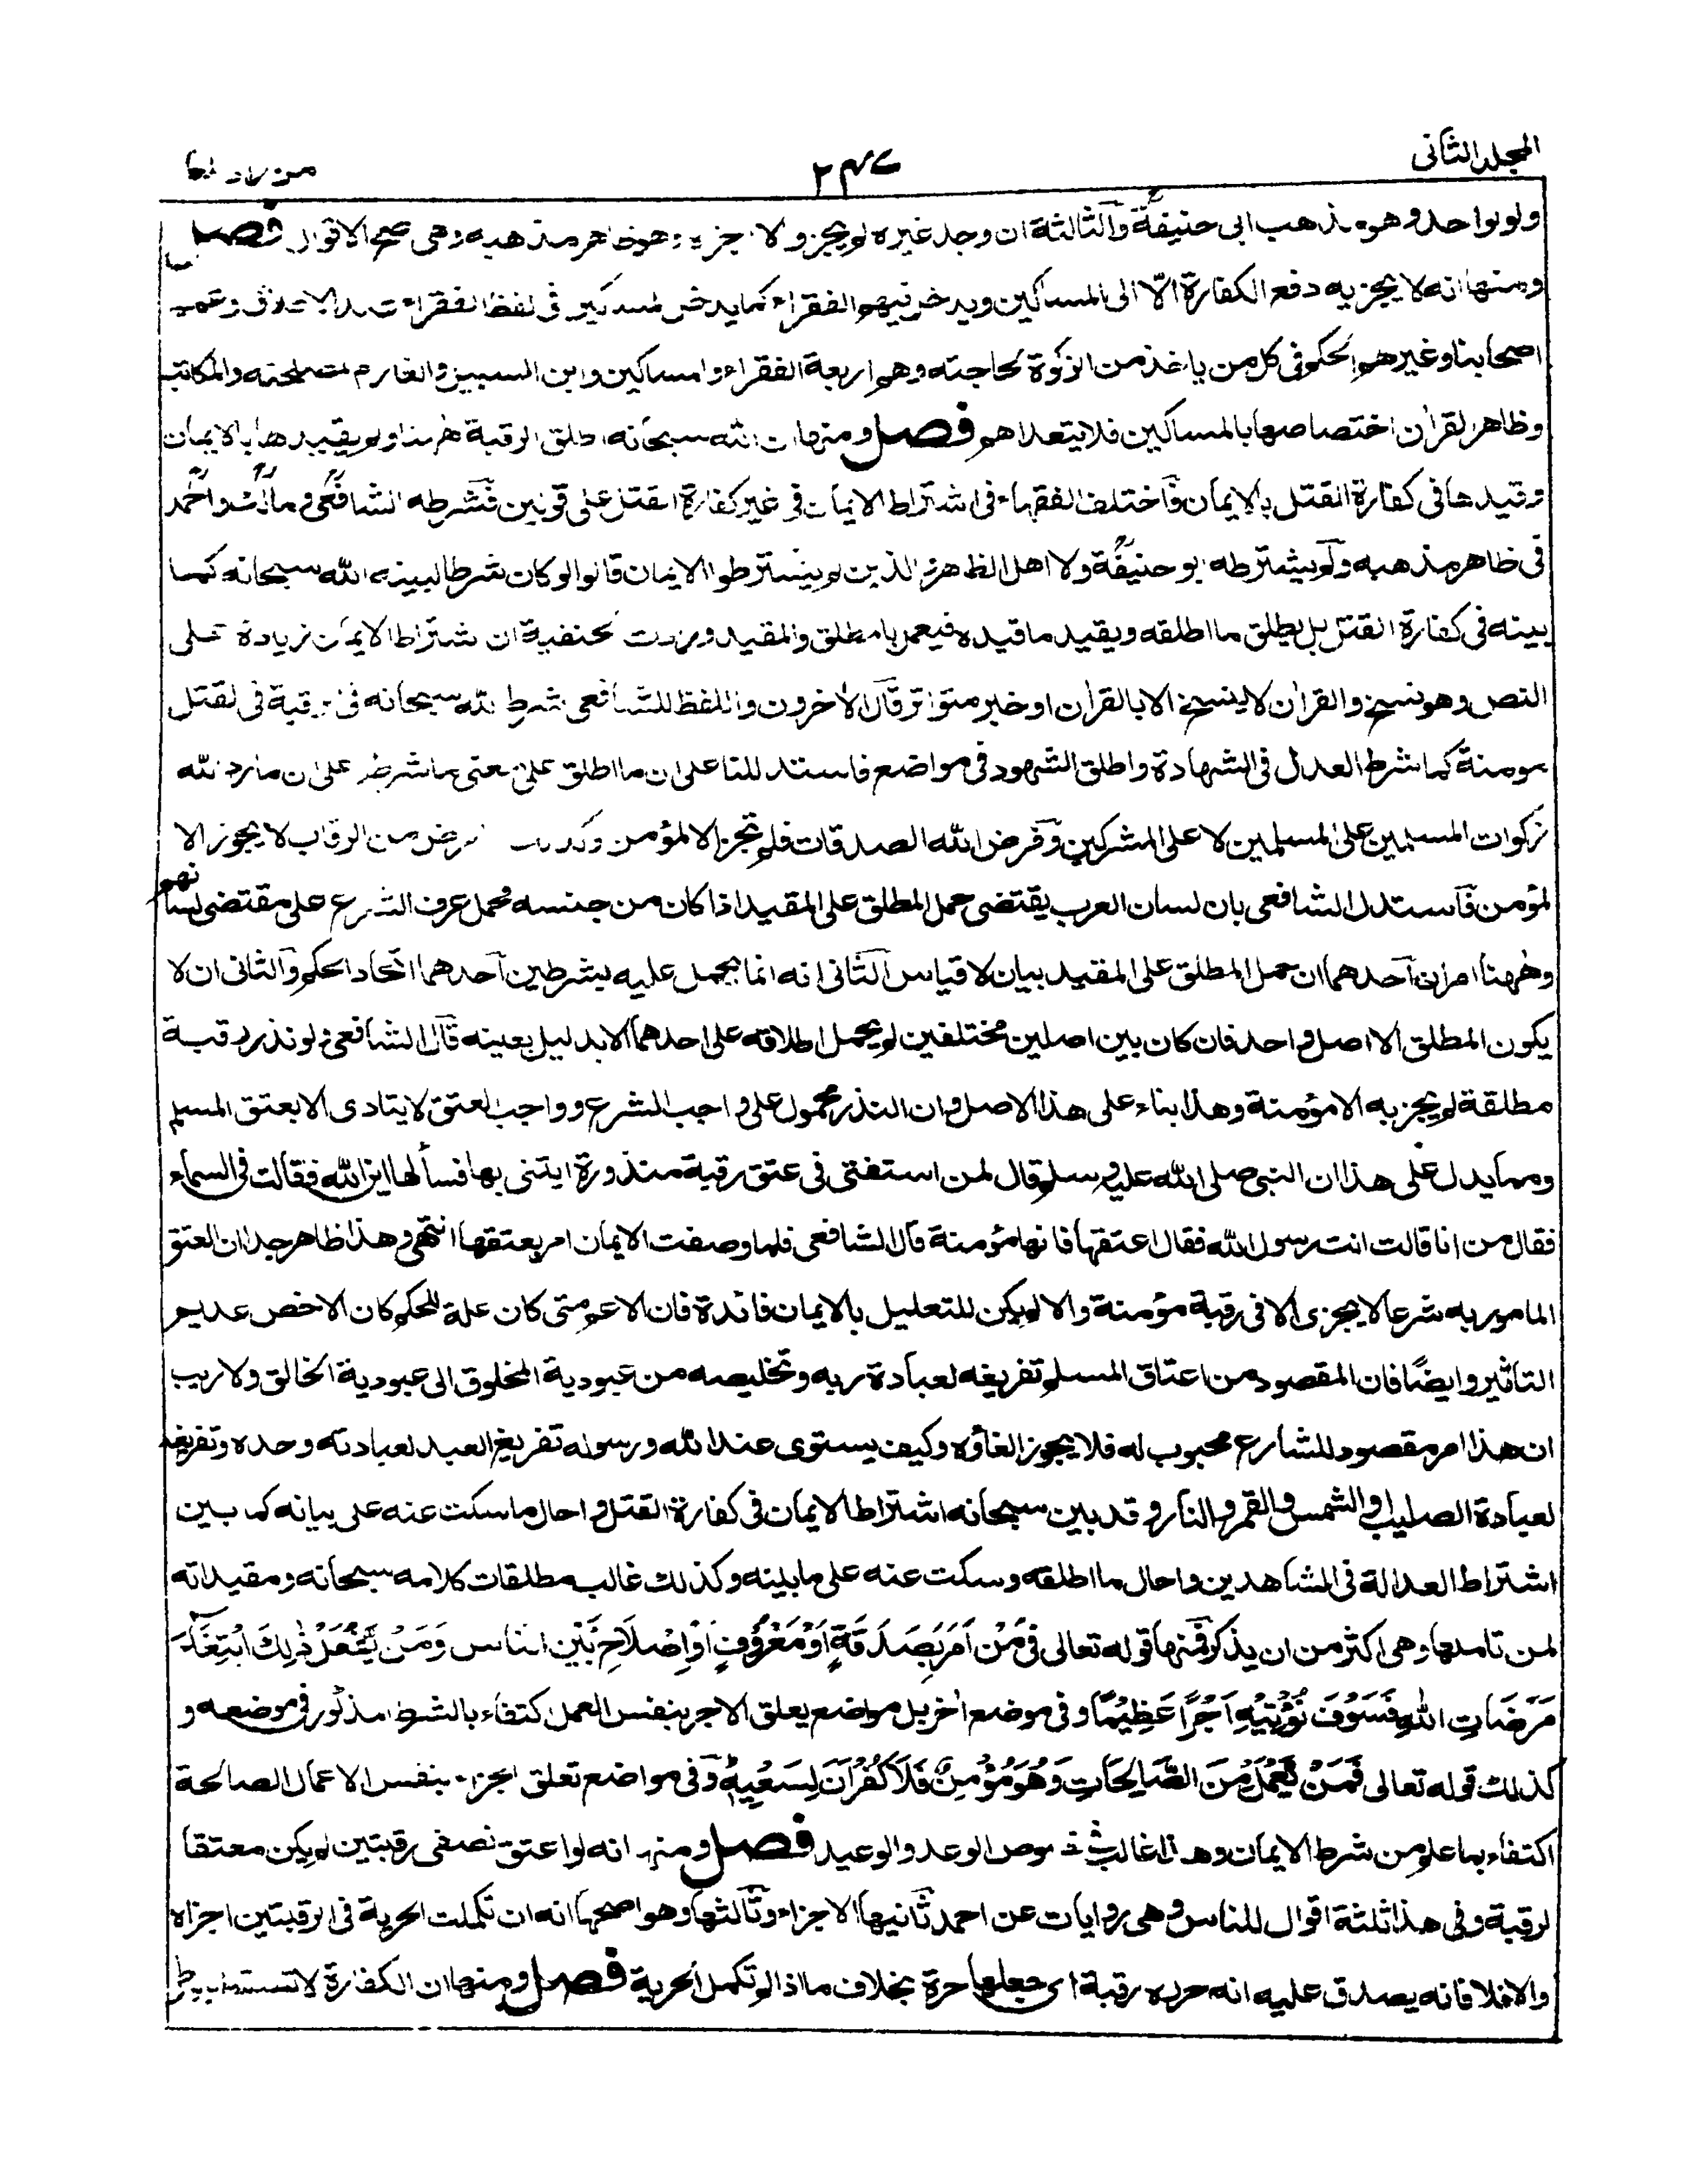 المجلد الثانى
٢٣٤
من زاد
ولو لواحد وهو مذهب ابى حنيفة والثالثة ان وجد غيره لم يجز والا اجزءه وهو ظاهر مذهبه وهى اصح الاقوال فصل
ومنها انه لا يجزيه دفع الكفارة الّا الى المساكين ويدخل فيهم الفقراء كما يدخل المساكين فى لفظ الفقراء عند الاطلاق وعمم
اصحابنا وغيرهم الحكم فى كل من ياخذ من الزكوة لحاجته وهم اربعة الفقراء والمساكين وابن السبيل والغارم لمصلحته والمكاتب
وظاهر القران اختصاصها بالمساكين فلا يتعداهم فصل ومنها ان الله سبحانه اطلق الرقبة ههنا ولم يقيدها بالايمان
وقيدها فى كفارة القتل بالايمان فاختلف الفقهاء فى اشتراط الايمان فى غير كفارة القتل على قولين فشرطه الشافعى ومالك واحمد
فى ظاهر مذهبه ولم يشترطه ابو حنيفة ولا اهل الظاهر والذين لم يشترطوا الايمان قالوا لو كان شرطا لبينه الله سبحانه كما
بينه فى كفارة القتل بل يطلق ما اطلقه ويقيد ما قيده فيعمل بالمطلق والمقيد وزادت الحنفية ان اشتراط الايمان زيادة على
النص وهو نسخ والقران لا ينسخ الا بالقران او خبر متواتر قال الاخرون واللفظ للشافعى شرط الله سبحانه فى رقبة فى القتل
مومنة كما شرط العدل فى الشهادة واطلق الشهود فى مواضع فاستدللنا على ان ما اطلق على معنى ما شرط على ان ما رد الله
زكوات المسلمين على المسلمين لا على المشركين وفرض الله الصدقات فلم تجز الا لمؤمن وكذلك فرض من الرقاب لا يجوز الا
لمؤمن فاستدل الشافعى بان لسان العرب يقتضى حمل المطلق على المقيد اذا كان من جنسه فحمل عرف الشرع على مقتضى لسانهم
وههنا امران احدهما ان حمل المطلق على المقيد بيان لا قياس الثانى انه انما يحمل عليه بشرطين احدهما اتحاد الحكم والثانى ان لا
يكون المطلق الا اصل واحد فان كان بين اصلين مختلفين لم يحمل اطلاقه على احدهما الا بدليل يعينه قال الشافعى ولو نذر رقبة
مطلقة لم يجز به الا مؤمنة وهذا بناء على هذا الاصل وان النذر محمول على واجب الشرع وواجب العتق لا يتادى الا بعتق المسلم
ومما يدل على هذا ان النبى صلى الله عليه وسلم قال لمن استفتى فى عتق رقبة منذورة ايتنى بها فسألها اين الله فقالت فى السماء
فقال من انا قالت انت رسول الله فقال اعتقها فانها مؤمنة قال الشافعى فلما وصفت الايمان امر بعتقها انتهى وهذا ظاهر جدا ان العتق
المامور به شرعا لا يجزى الا فى رقبة مؤمنة والا لم يكن للتعليل بالايمان فائدة فان الاعم متى كان علة للحكم كان الاخص عديم
التاثير وايضًا فان المقصود من اعتاق المسلم تفريغه لعبادة ربه وتخليصه من عبودية المخلوق الى عبودية الخالق ولا ريب
ان هذا امر مقصود للشارع محبوب له فلا يجوز الغاؤه وكيف يستوى عند الله ورسوله تفريغ العبد لعبادته وحده وتفريغه
لعبادة الصليب او الشمس والقمر والنار وقد بين سبحانه اشتراط الايمان فى كفارة القتل واحال ما سكت عنه على بيانه كما بين
اشتراط العدالة فى الشاهدين واحال ما اطلقه وسكت عنه على ما بينه وكذلك غالب مطلقات كلامه سبحانه ومقيداته
لمن تاملها وهى اكثر من ان يذكر فمنها قوله تعالى فى مَنْ اَمَرَ بِصَدَقَةٍ اَوْ مَعْرُوْفٍ اَوْ اِصْلَاحٍ بَيْنَ الناس وَمَنْ يَّفْعَلْ ذٰلِكَ ابْتِغَآءَ
مَرْضَاتِ اللهِ فَسَوْفَ نُؤْتِيْهِ اَجْرًا عَظِيْمًا وفى موضع اخر بل مواضع يعلق الاجر بنفس العمل اكتفاء بالشرط المذكور فى موضعه و
كذلك قوله تعالى فَمَنْ يَّعْمَلْ مِنَ الصَّالِحَاتِ وَهُوَ مُؤْمِنٌ فَلَا كُفْرَانَ لِسَعْيِهٖ وفى مواضع تعلق الجزاء بنفس الاعمال الصالحة
اكتفاء بما علم من شرط الايمان وهذا غالب فى نصوص الوعد والوعيد فصل ومنها انه لو اعتق نصفى رقبتين لم يكن معتقا
لرقبة وفى هذا ثلثة اقوال للناس وهى روايات عن احمد ثانيها الاجزاء وثالثها وهو اصحها انه ان تكملت الحرية فى الرقبتين اجزاه
والا فلا فانه يصدق عليه انه حرر رقبة اى جعلها حرة بخلاف ما اذا لم تكمل الحرية فصل ومنها ان الكفارة لا تسقط